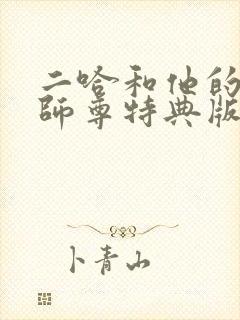 二哈和他的
師尊特典版
卜青山